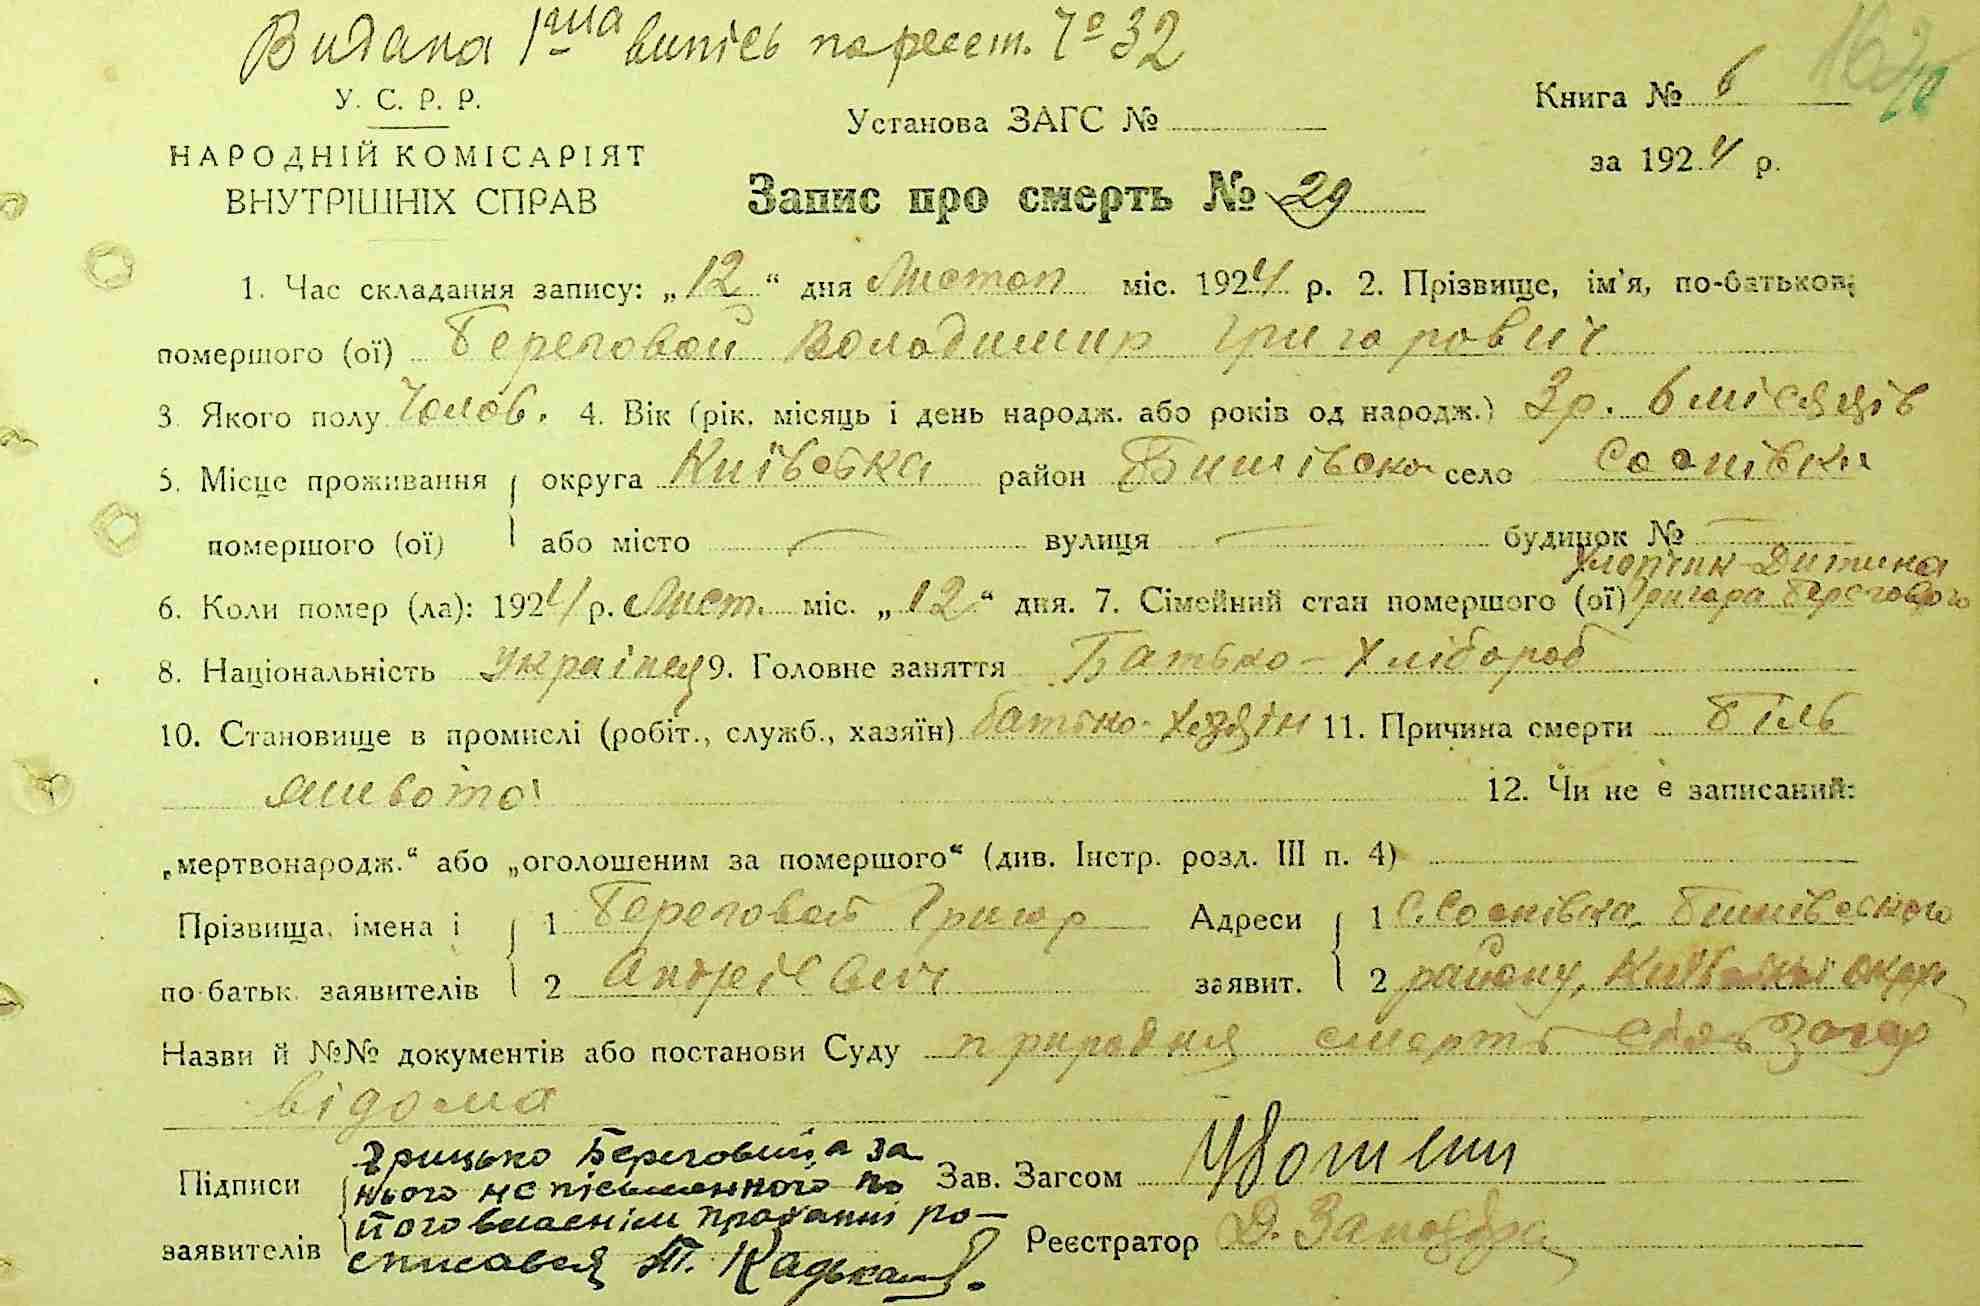 Видана 1ша випісь по реест. № 32
У. С. Р. Р.
НАРОДНІЙ КОМІСАРІЯТ
ВНУТРІШНІХ СПРАВ
Установа ЗАГС №
Книга № 6
за 1924 р.
Запис про смерть № 29
1. Час складання запису: „12“ дня Листоп міс. 1924 р. 2. Прізвище, ім'я, по-батькові
помершого (ої) Береговой Володимир Григорович
3. Якого полу Чолов. 4. Вік (рік. місяць і день народж. або років од народж.) 3 р. 6 місяців
5. Місце проживання округа Київська район Бишівська село Соснівка
помершого (ої) або місто — вулиця — будинок № —
Хлопчик-Дитина
6. Коли помер (ла): 1924 р. Лист. міс. „12“ дня. 7. Сімейний стан помершого (ої) Григора Берегового
8. Національність Українец 9. Головне заняття Батько-Хлібороб
10. Становище в промислі (робіт., служб., хазяїн) батько-Хазяін 11. Причина смерти Біль
живота 12. Чи не є записаний:
„мертвонародж.“ або „оголошеним за помершого“ (див. Інстр. розд. III п. 4)
Прізвища, імена і 1 Береговой Григор Адреси 1 С. Соснівка Бишівського
по-батьк. заявителів 2 Андрієвич заявит. 2 району, Київської округи
Назви й №№ документів або постанови Суду природня смерть
відома
Підписи Грицько Береговий а за Зав. Загсом
нього неписьменного по
його власнім проханні ро-
заявителів списався Реєстратор Д.